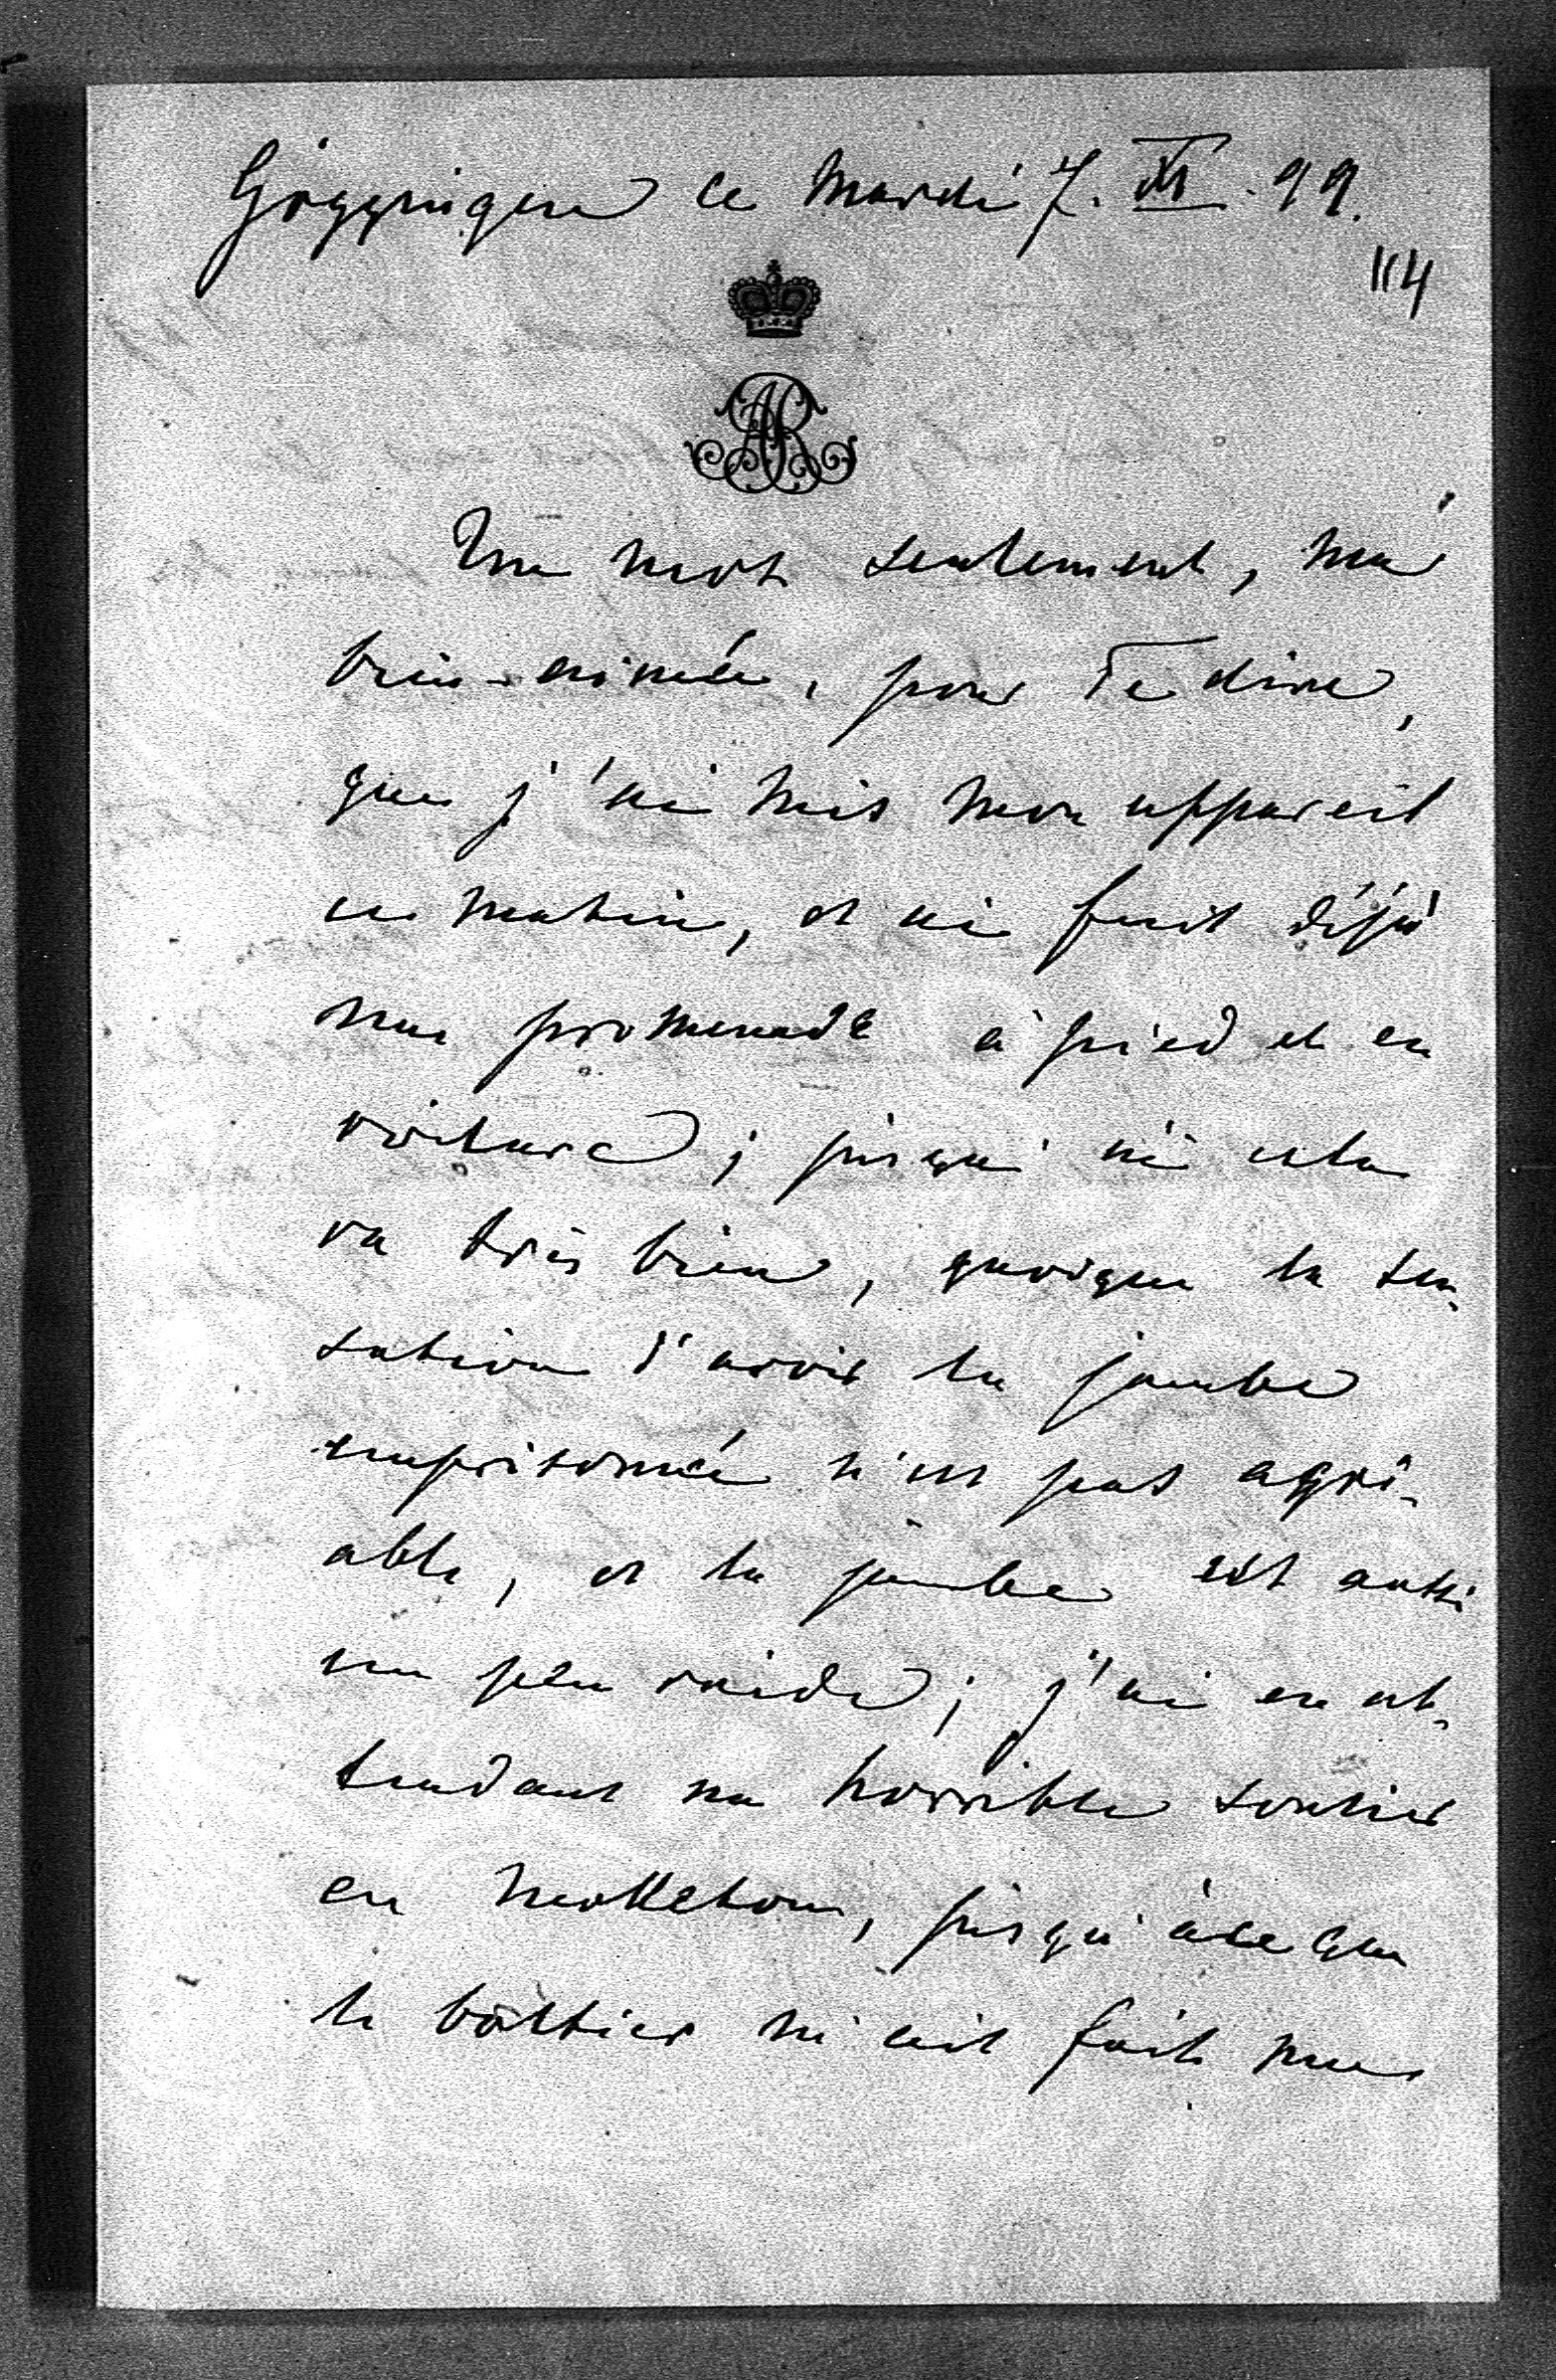 Göggingen ce Mardi 7. XI. 99.
114
AR
Un mot seulement, ma
bien-aimée, pour Te dire,
que j'ai mis mon appareil
ce matin, et ai fait déjà
une promenade à pied et en
voiture; jusqu'ici cela
va très bien, quoique la sen-
sation d'avoir la jambe
emprisonnée n'est pas agré-
able, et la jambe est aussi
un peu raide; j'ai en at-
tendant un horrible soulier
en molleton, jusqu'à ce que
le bottier m'ait fait mes